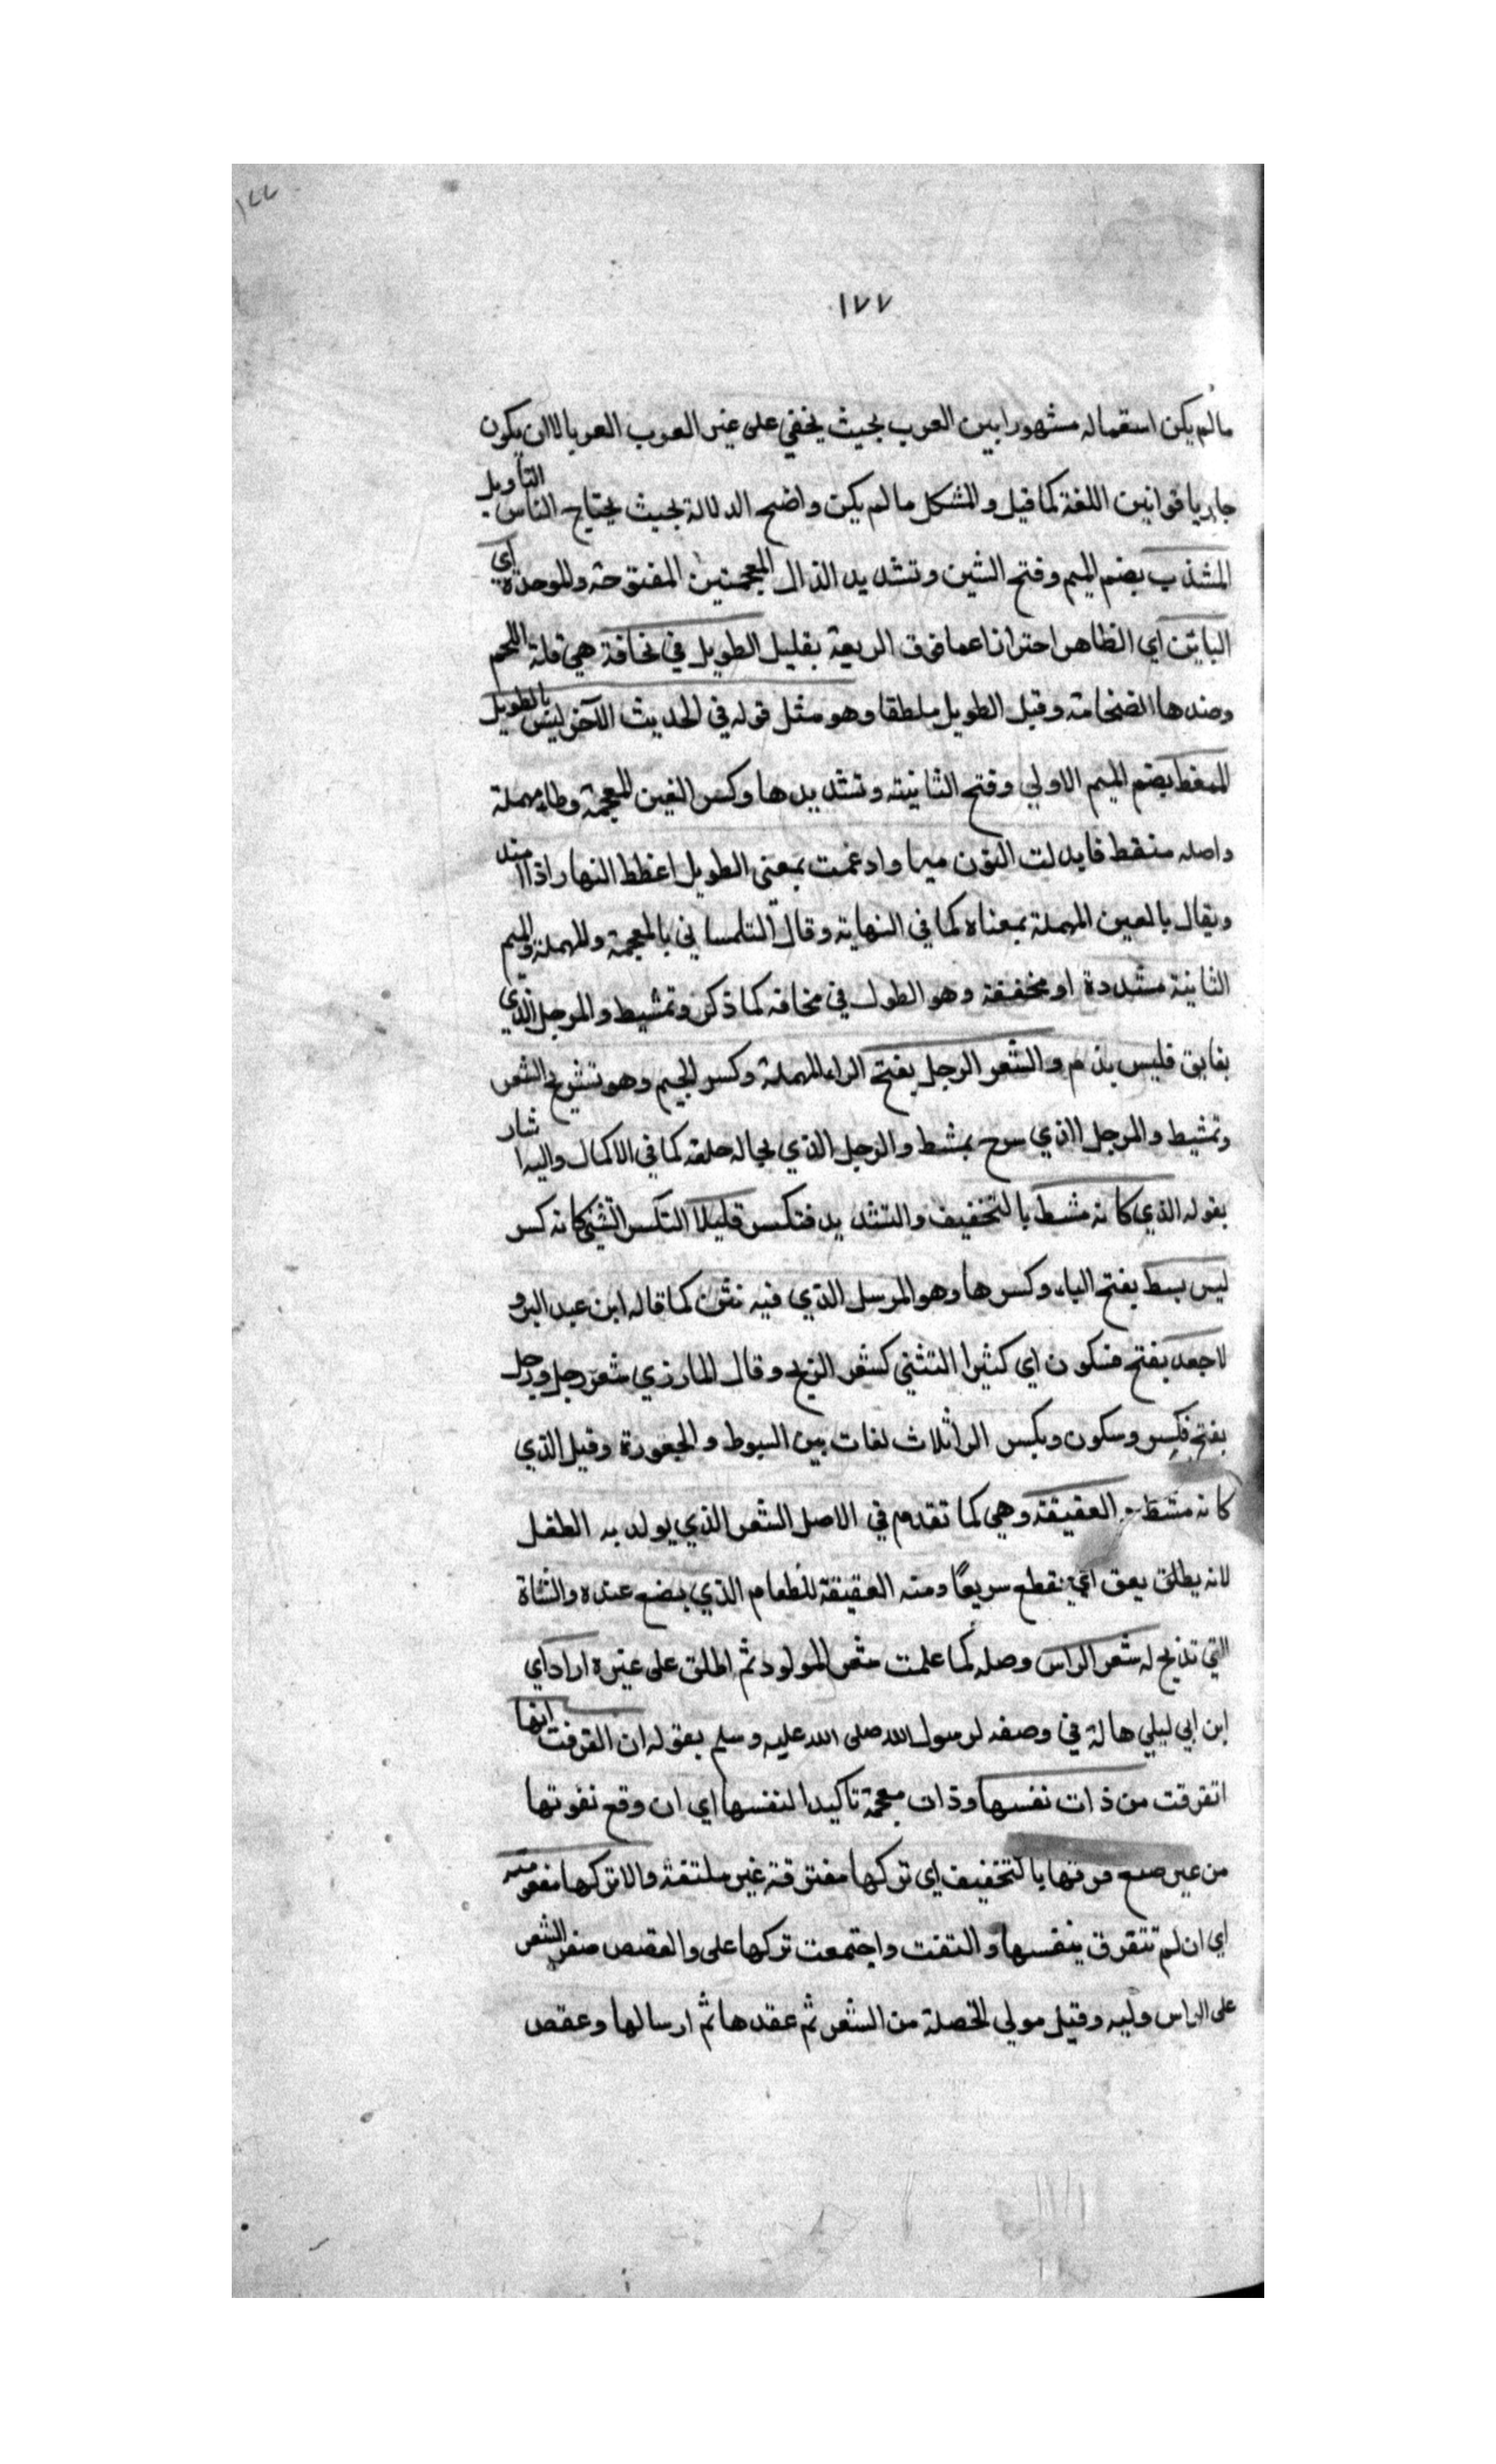 ١٧٧
١٧٧
ما لم يكن استعماله مشهورا بين العرب بحيث يخفي على غير العرب العربا الا ان يكون
جاريا قوانين اللغة كما قيل والمشكل ما لم يكن واضح الدلالة بحيث يحتاج الناس التأويل
المشذب بضم الميم وفتح الشين وتشديد الذال المعجمتين المفتوحة والموحدة اي
الباين اي الظاهر احترازا عما فوق الربعة بقليل الطويل في نحافة هي قلة اللحم
وضدها الضخامة وقيل الطويل مطلقا وهو مثل قوله في الحديث الآخر ليس بالطويل
الممغط بضم الميم الاولي وفتح الثانية وتشديدها وكسر الغين المعجمة وطا مهملة
واصله منغط فابدلت النون ميما وادغمت بمعني الطويل اغطط النهار اذا امتد
ويقال بالعين المهملة بمعناه كما في النهاية وقال التلمساني بالمعجمة والمهملة والميم
الثانية مشددة او مخففة وهو الطول في نحافة كما ذكر وتمشيط والمرجل الذي
بفايق فليس بذم والشعر الرجل بفتح الراء المهملة وكسر الجيم وهو تسريح الشعر
وتمشيط والمرجل الذي سرح بمشط والرجل الذي بحاله خلقه كما في الاكمال واليه اشار
بقوله الذي كانه مشط بالتخفيف والتشديد فتكسر قليلا التكسر التثني كانه كسر
ليس بسط بفتح الباء وكسرها وهو المرسل الذي فيه تثن كما قاله ابن عبد البر و
لا جعد بفتح فسكون اي كثيرا التثني كشعر الزنج وقال المازري شعر رجل ورجل
بفتح فكسر وسكون وبكسر الرا ثلاث لغات بين السبوط والجعودة وقيل الذي
كانه مشط العقيقة وهي كما تقدم في الاصل الشعر الذي يولد به الطفل
لانه يطلق يعق اي يقطع سريعًا ومنه العقيقة للطعام الذي يصنع عنده والشاة
التي تذبح له شعر الراس وصله كما علمت شعر المولود ثم اطلق على غيره اراد اي
ابن ابي ليلي هالة في وصفه لرسول الله صلى الله عليه وسلم بقوله ان انفرقت انها
انفرقت من ذات نفسها وذات معجمة تاكيدا لنفسها اي ان وقع نفرتها
من غير صنع فرقها بالتخفيف اي تركها مفترقة غير ملتفة والا تركها معقوصة
اي ان لم تتفرق بنفسها والتفت واجتمعت تركها على والعقص ضفر الشعر
على الراس وليه وقيل مولي الخصلة من الشعر ثم عقدها ثم ارسالها وعقص